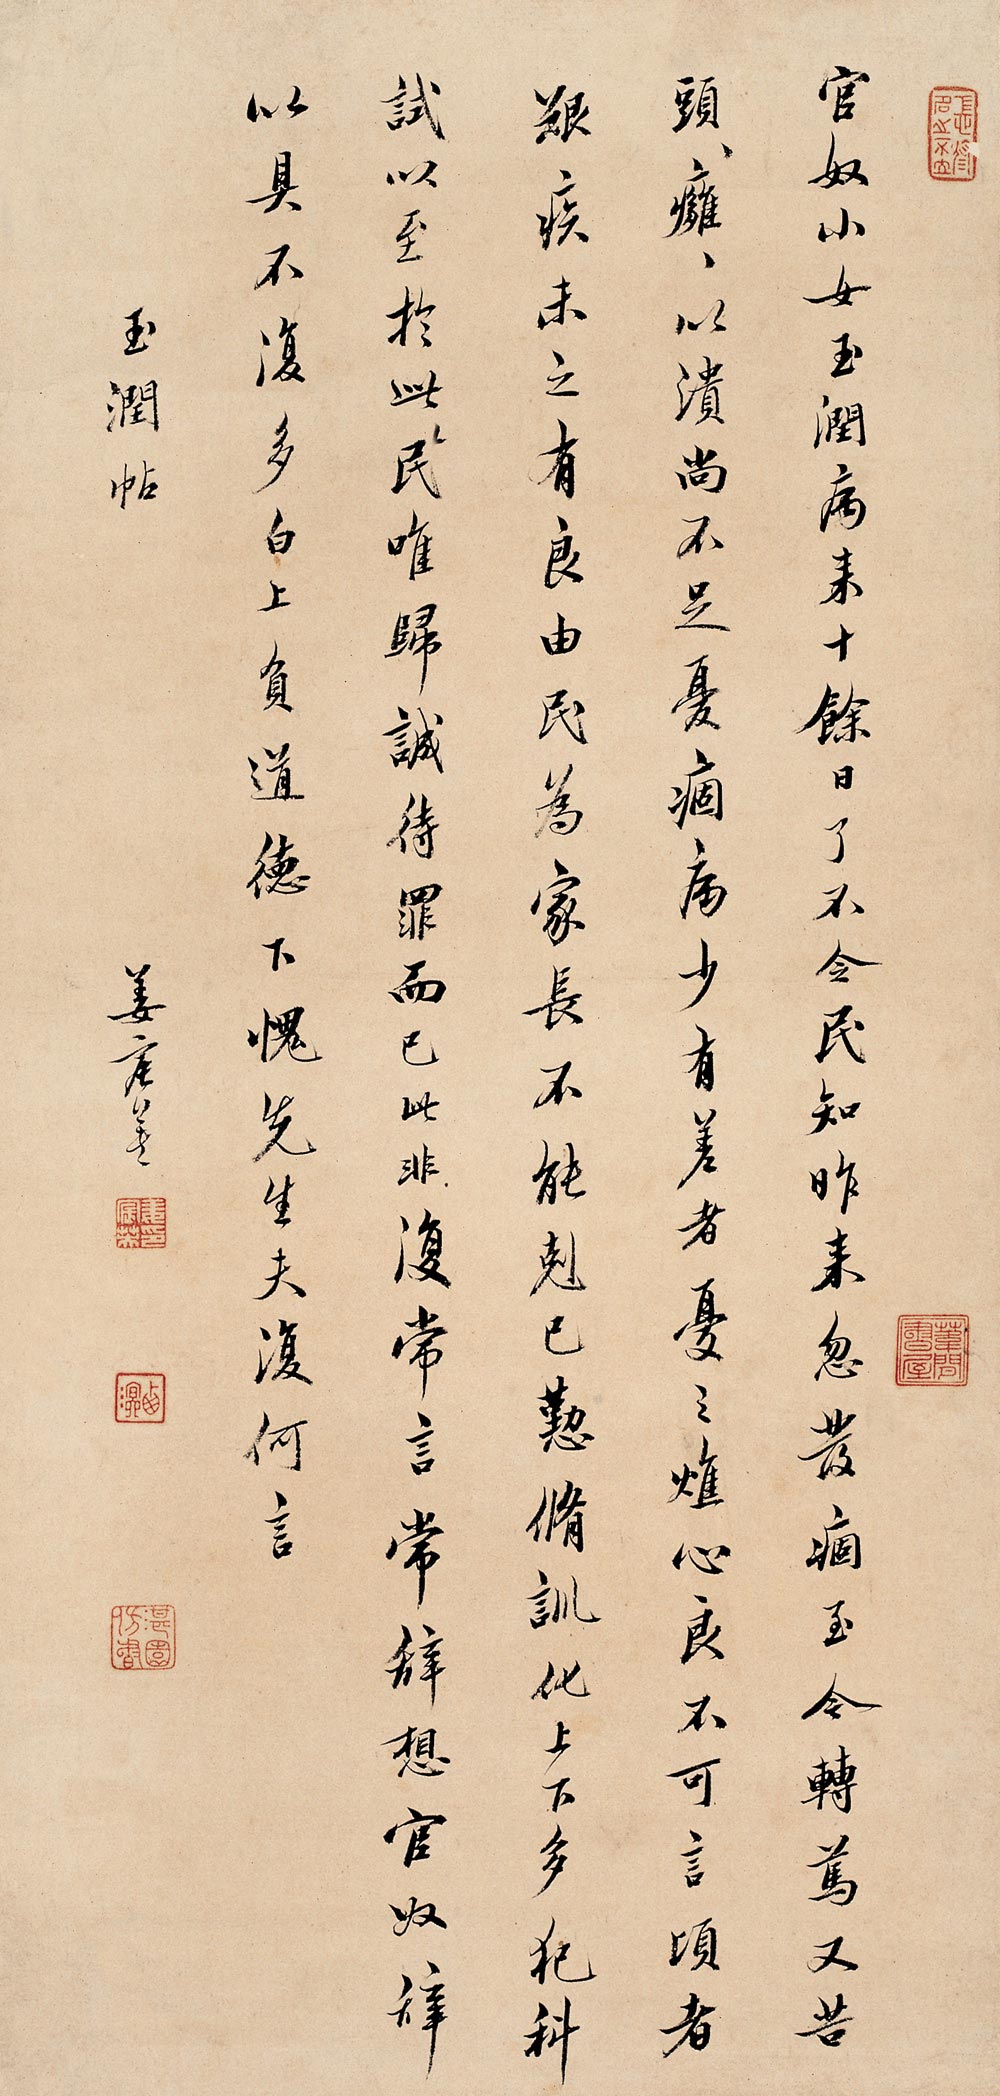 官奴小女玉潤病來十餘日了不令民知昨來忽發痼至令轉篤又苦
頭、癰、以潰尚不足憂痼病少有差者憂之燋心良不可言頃者
艱疾未之有良由民為家長不能剋己懃脩訓化上下多犯科
試以至於此民唯歸誠待罪而已此非復常言常辭想官奴辭
以具不復多白上負道德下愧先生夫復何言
玉潤帖
姜宸英
葦間書屋
湛園